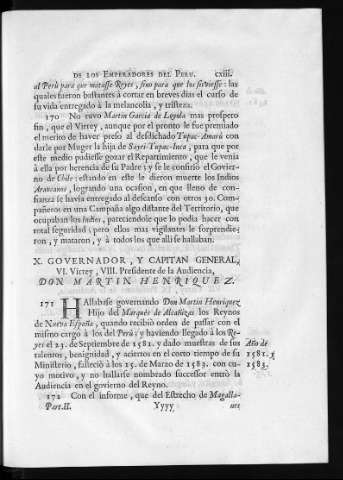 DE LOS EMPERADORES DEL PERU. cxiii.
al Perù para que matasse Reyes, sino para que los sirviesse: las
quales fueron bastantes à cortar en breves dias el curso de
su vida entregado à la melancolia, y tristeza.
170 No tuvo Martin Garcia de Loyola mas prospero
fin, que el Virrey, aunque por el pronto le fue premiado
el merito de haver preso al desdichado Tupac-Amarù con
darle por Muger la hija de Sayri-Tupac-Inca, para que por
este medio pudiesse gozar el Repartimiento, que le venia
à ella por herencia de su Padre; y se le confiriò el Govier-
no de Chile: estando en este le dieron muerte los Indios
Araucanos, logrando una ocasion, en que lleno de con-
fianza se havia entregado al descanso con otros 30. Com-
pañeros en una Campaña algo distante del Territorio, que
ocupaban los Indios, pareciendole que lo podia hacer con
total seguridad; pero ellos mas vigilantes le sorprendie-
ron, y mataron, y à todos los que alli se hallaban.
X. GOVERNADOR, Y CAPITAN GENERAL,
VI. Virrey, VIII. Presidente de la Audiencia,
DON MARTIN HENRIQUEZ.
171 Hallabase governando Don Martin Henriquez
Hijo del Marquès de Alcañizas los Reynos
de Nueva España, quando recibiò orden de passar con el
mismo cargo à los del Perù: y haviendo llegado à los Re-
yes el 23. de Septiembre de 1581. y dado muestras de sus
talentos, benignidad, y aciertos en el corto tiempo de su
Ministerio, falleciò à los 15. de Marzo de 1583. con cu-
yo motivo, y no hallarse nombrado successor entrò la
Audiencia en el govierno del Reyno.
Año de
1581. y
1583.
172 Con el informe, que del Estrecho de Magalla-
Part.II. Yyyy nes